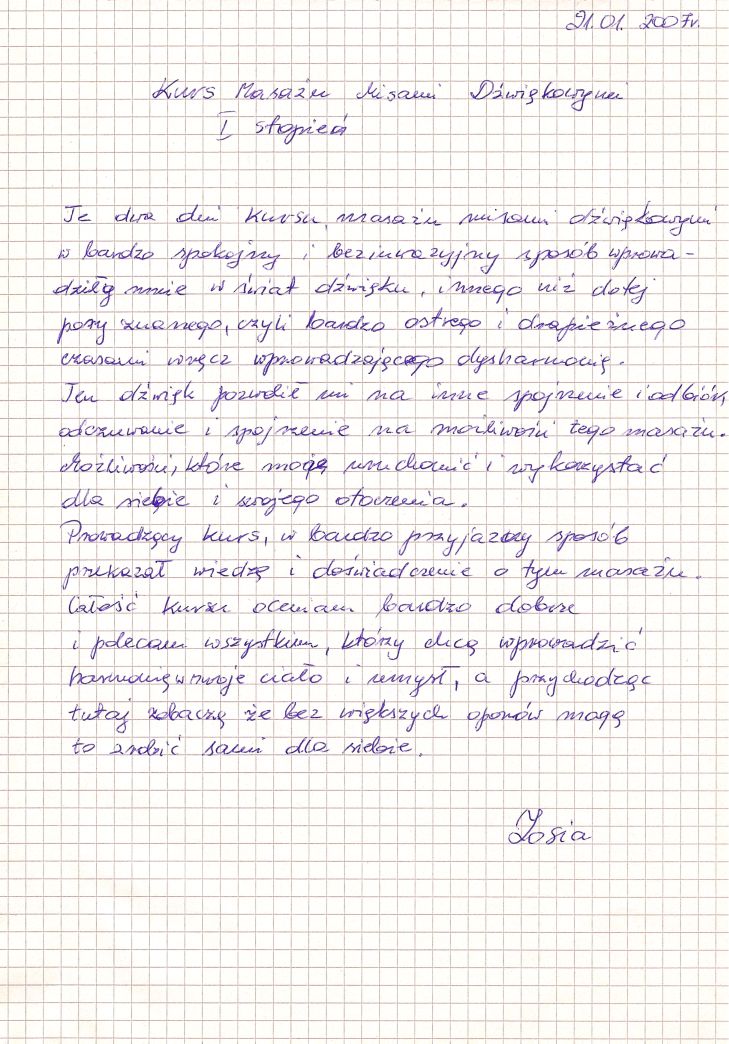 21.01. 2007r.
Kurs Masażu Misami Dźwiękowymi
I stopień
Te dwa dni kursu, masażu misami dźwiękowymi
w bardzo spokojny i bezinwazyjny sposób wprowa-
dziły mnie w świat dźwięku, innego niż dotej
pory znanego, czyli bardzo ostrego i drapieżnego
czasami wręcz wprowadzającego dysharmonię.
Ten dźwięk pozwolił mi na inne spojrzenie i odbiór,
odczuwanie i spojrzenie na możliwości tego masażu.
Możliwości, które mogę uruchomić i wykorzystać
dla siebie i swojego otoczenia.
Prowadzący kurs, w bardzo przyjazny sposób
przekazał wiedzę i doświadczenie o tym masażu.
Całość kursu oceniam bardzo dobrze
i polecam wszystkim, którzy chcą wprowadzić
harmonię w swoje ciało i umysł, a przychodząc
tutaj zobaczą że bez większych oporów mogą
to zrobić sami dla siebie.
Zosia